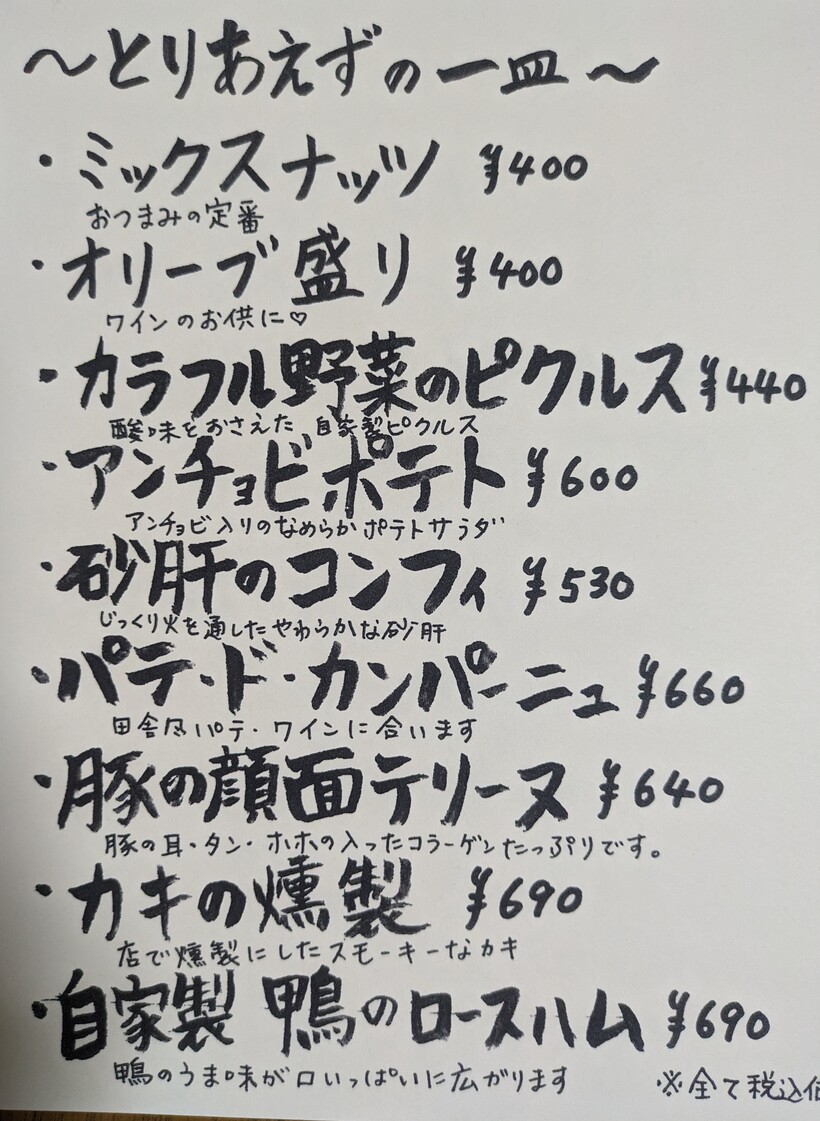 ～とりあえずの一皿～
・ミックスナッツ ¥400
おつまみの定番
・オリーブ盛り ¥400
ワインのお供に♡
・カラフル野菜のピクルス ¥440
酸味をおさえた 自家製ピクルス
・アンチョビポテト ¥600
アンチョビ入りのなめらかポテトサラダ
・砂肝のコンフィ ¥530
じっくり火を通したやわらかな砂肝
・パテ・ド・カンパーニュ ¥660
田舎風パテ・ワインに合います
・豚の顔面テリーヌ ¥640
豚の耳・タン・ホホの入ったコラーゲンたっぷりです。
・カキの燻製 ¥690
店で燻製にしたスモーキーなカキ
・自家製 鴨のロースハム ¥690
鴨のうま味が口いっぱいに広がります
※全て税込